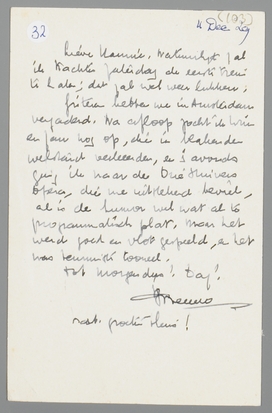 32
(103)
4 Dec 29
Lieve Hannie, Natuurlijk zal
ik Zaterdag de eerste trein
te halen; dat zal wel weer lukken.
Gisteren hebben we in Amsterdam
vergaderd. Na afloop zocht ik Wim
en Jan nog op, die in
welstand verkeerden, en 's avonds
ging ik naar de Drie Stuivers
Opera, die me uitstekend beviel,
al is de humor wel wat al te
programmatisch plat, maar het
werd goed en vlot gespeeld, en het
was tenminste tooneel.
Tot morgen dus! Dag!
Menno
groeten thuis!